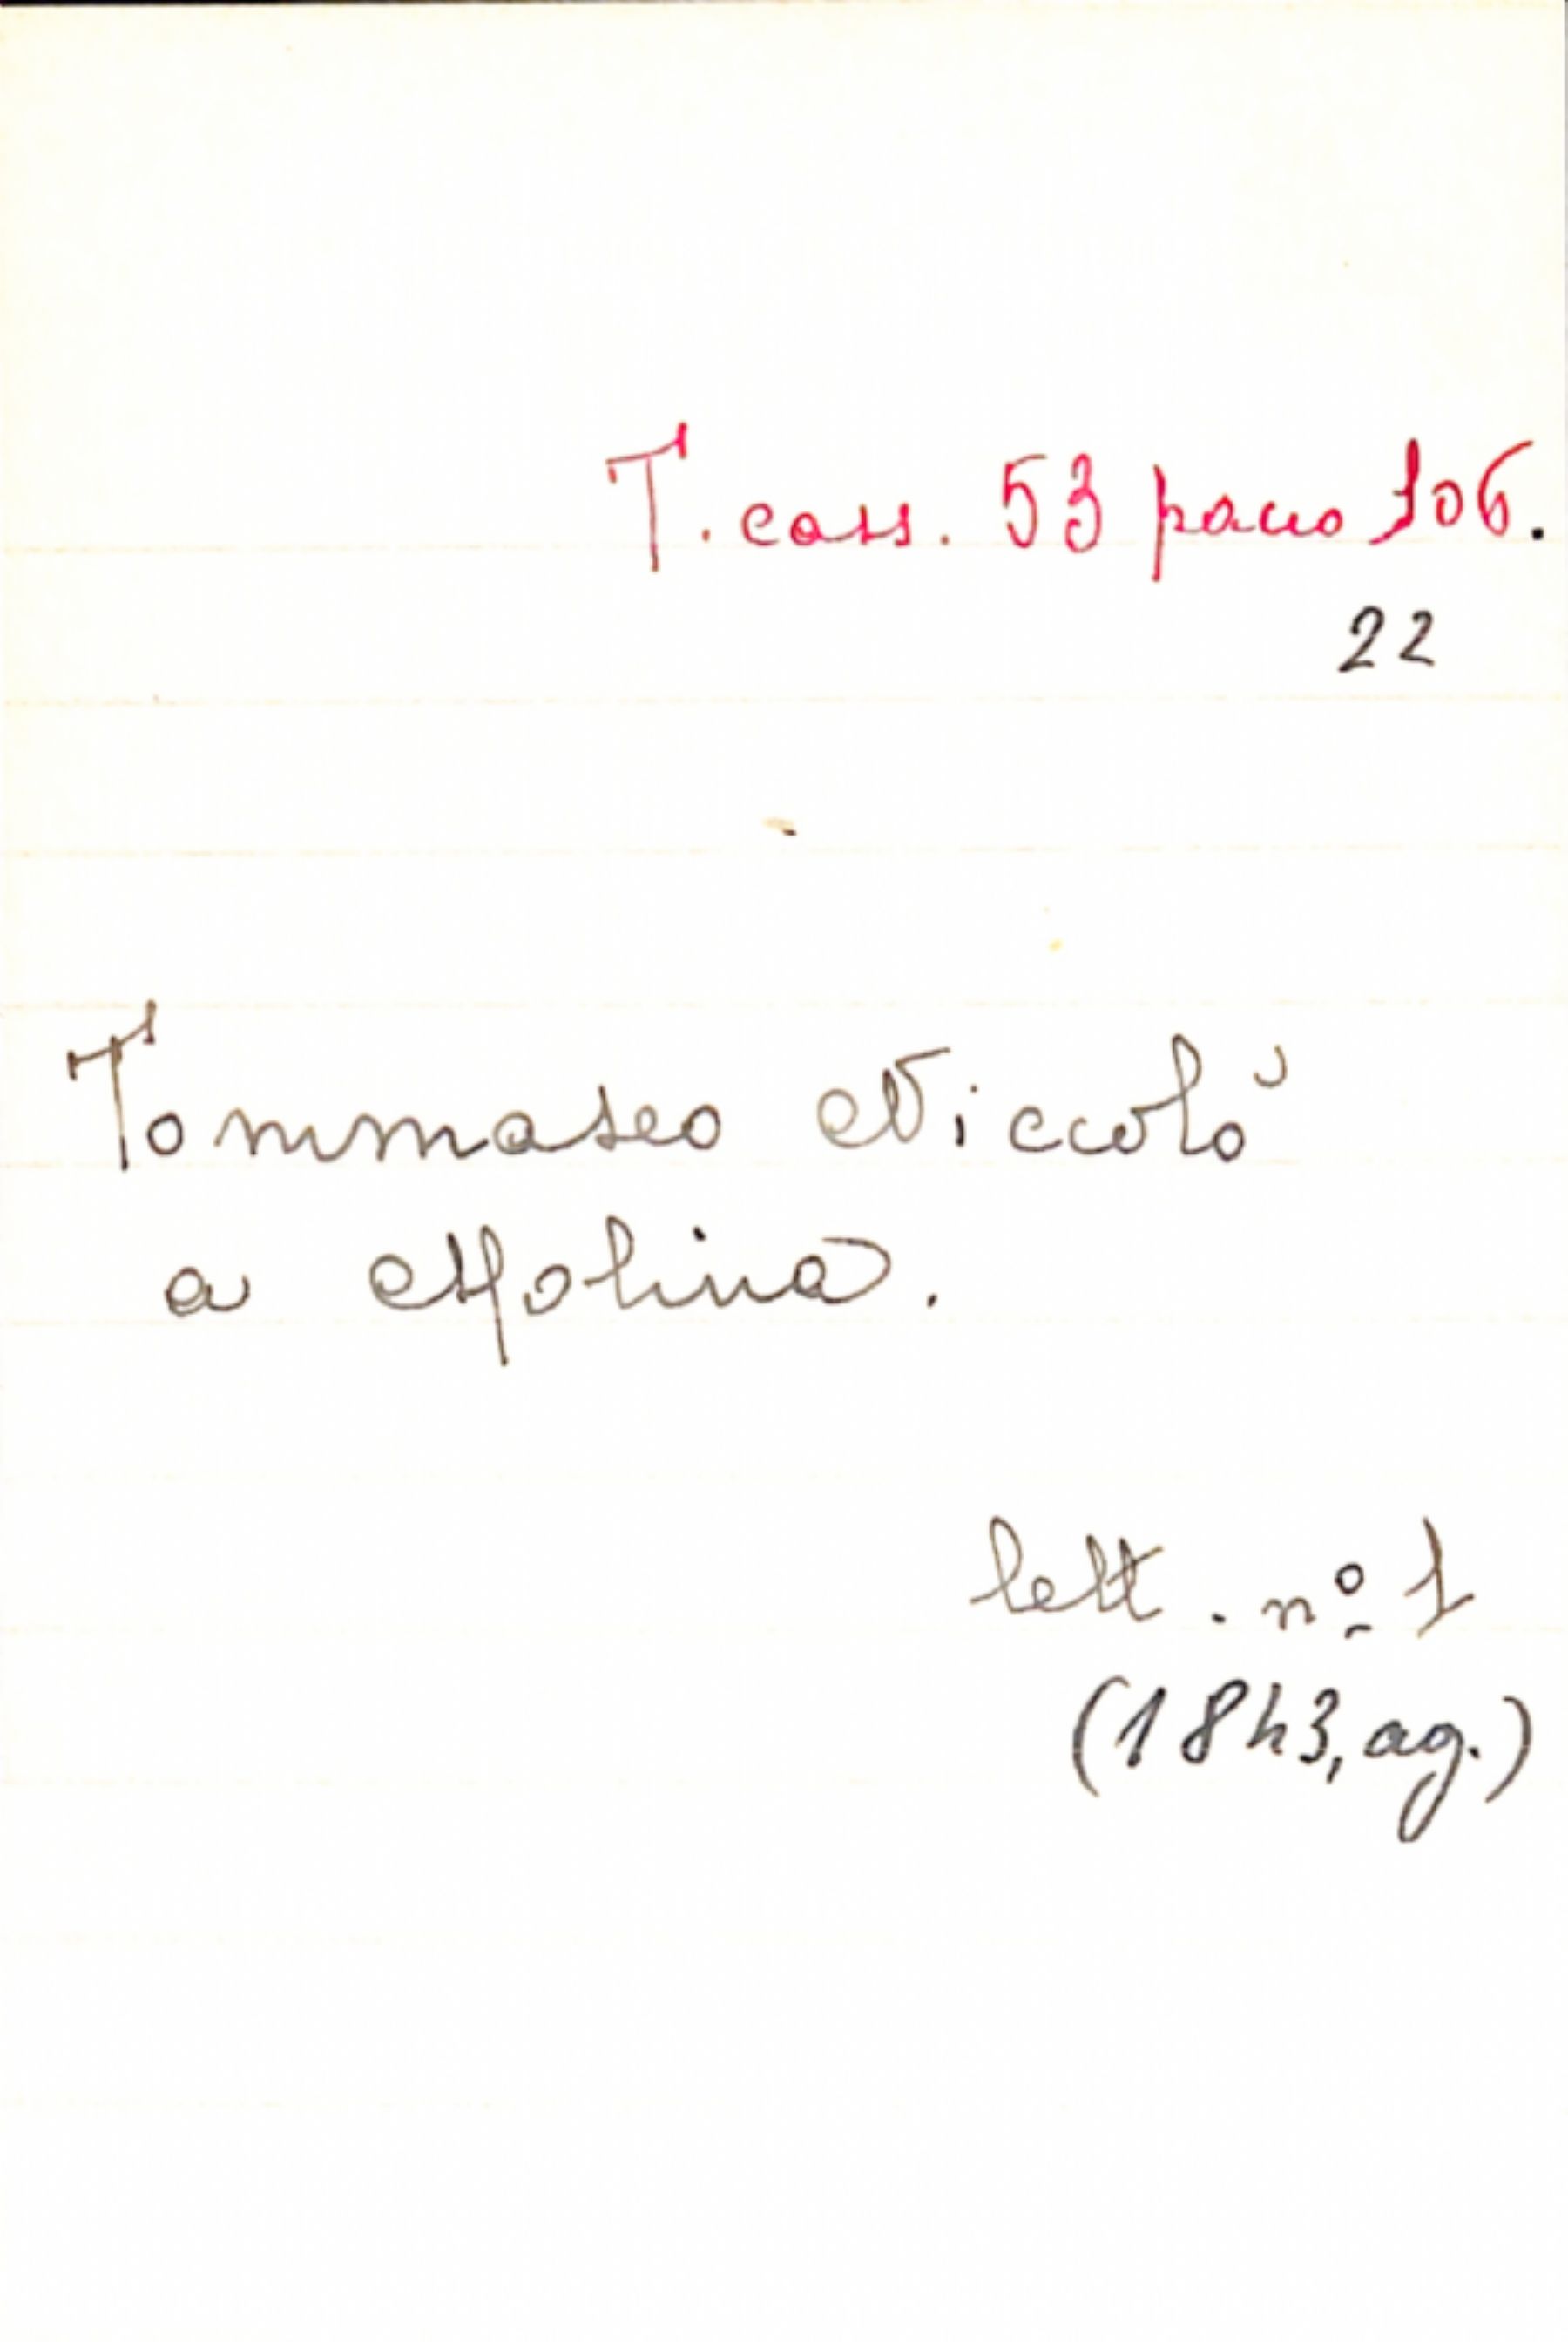 T. cass. 53 pacco 106.
22
Tommaseo Niccolò
a Molina.
lett. nº 1
(1843, ag.)